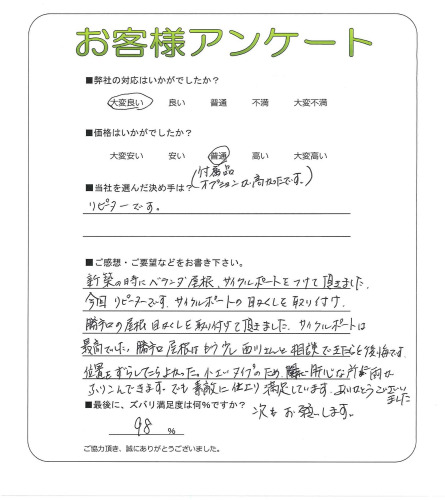 お客様アンケート
■弊社の対応はいかがでしたか?
大変良い 良い 普通 不満 大変不満
■価格はいかがでしたか?
大変安い 安い 普通 高い 大変高い
(付属品
オプションが高かったです。)
■当社を選んだ決め手は?
リピーターです。
■ご感想・ご要望などをお書き下さい。
新築の時にベランダ屋根、サイクルポートをつけて頂きました。
今回リピーターです。サイクルポートの目かくしを取り付け、
勝手口の屋根目かくしを取り付けて頂きました。サイクルポートは
最高でした。勝手口屋根はもう少し西川さんと相談できたらと後悔です。
位置をずらしたらよかった。小さいタイプのため 肝心な所が雨が
ふりこんできます。でも素敵に仕上り満足しています。ありがとうございました
■最後に、ズバリ満足度は何%ですか?
次もお願いします。
98 %
ご協力頂き、誠にありがとうございました。